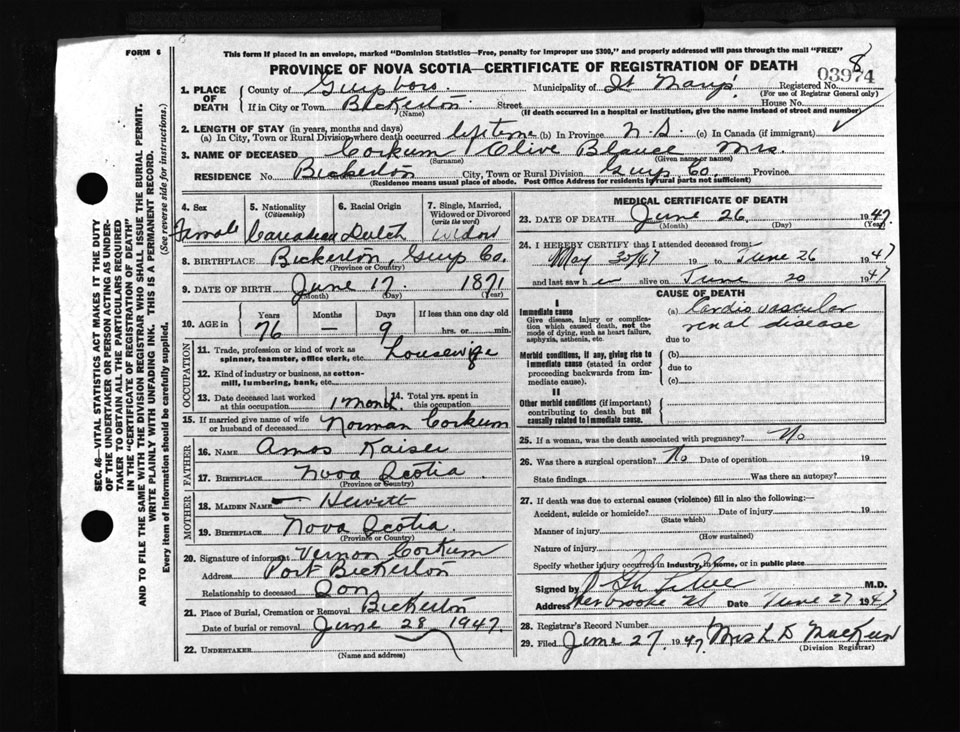 FORM 6
This form if placed in an envelope, marked "Dominion Statistics—Free, penalty for improper use $300," and properly addressed will pass through the mail "FREE"
PROVINCE OF NOVA SCOTIA—CERTIFICATE OF REGISTRATION OF DEATH
8
03974
1. PLACE OF DEATH
County of Guysboro. Municipality of St Mary's Registered No.
(For use of Registrar General only)
If in City or Town Bickerton Street House No.
(Name) (If death occurred in a hospital or institution, give the name instead of street and number)
2. LENGTH OF STAY (in years, months and days)
(a) In City, Town or Rural Division where death occurred lifetime (b) In Province N.S. (c) In Canada (if immigrant)
3. NAME OF DECEASED Corkum Olive Blance Mrs.
(Surname) (Given name or names)
RESIDENCE No. Bickerton City, Town or Rural Division Guys Co. Province
(Residence means usual place of abode. Post Office Address for residents in rural parts not sufficient)
4. Sex 5. Nationality (Citizenship) 6. Racial Origin 7. Single, Married, Widowed or Divorced (write the word)
Female Canadian Dutch Widow
8. BIRTHPLACE Bickerton, Guys Co.
(Province or Country)
9. DATE OF BIRTH June 17 1871
(Month) (Day) (Year)
10. AGE in Years Months Days If less than one day old
76 — 9 hrs. or min.
OCCUPATION
11. Trade, profession or kind of work as spinner, teamster, office clerk, etc. Housewife
12. Kind of industry or business, as cotton-mill, lumbering, bank, etc.
13. Date deceased last worked at this occupation 1 Month 14. Total yrs. spent in this occupation
15. If married give name of wife or husband of deceased Norman Corkum
FATHER
16. NAME Amos Kaiser
17. BIRTHPLACE Nova Scotia
(Province or Country)
MOTHER
18. MAIDEN NAME — Hewitt
19. BIRTHPLACE Nova Scotia.
(Province or Country)
20. Signature of informant Vernon Corkum
Address Port Bickerton
Relationship to deceased Son
21. Place of Burial, Cremation or Removal Bickerton
Date of burial or removal June 28 1947.
22. UNDERTAKER
(Name and address)
MEDICAL CERTIFICATE OF DEATH
23. DATE OF DEATH June 26 1947
(Month) (Day) (Year)
24. I HEREBY CERTIFY that I attended deceased from:
May 30/47 19 to June 26 1947
and last saw h er alive on June 20 1947
CAUSE OF DEATH
I
Immediate cause
Give disease, injury or complication which caused death, not the mode of dying, such as heart failure, asphyxia, asthenia, etc.
(a) Cardio vascular
renal disease
due to
Morbid conditions, if any, giving rise to immediate cause (stated in order proceeding backwards from immediate cause).
(b)
due to
(c)
II
Other morbid conditions (if important) contributing to death but not causally related to immediate cause.
25. If a woman, was the death associated with pregnancy? No
26. Was there a surgical operation? No Date of operation 19
State findings Was there an autopsy?
27. If death was due to external causes (violence) fill in also the following:—
Accident, suicide or homicide? Date of injury 19
(State which)
Manner of injury
(How sustained)
Nature of injury
Specify whether injury occurred in industry, in home, or in public place
Signed by M.D.
Address Date June 27 1947
28. Registrar's Record Number
29. Filed June 27 1947. Mrs
(Division Registrar)
SEC. 46—VITAL STATISTICS ACT MAKES IT THE DUTY
OF THE UNDERTAKER OR PERSON ACTING AS UNDER-
TAKER TO OBTAIN ALL THE PARTICULARS REQUIRED
IN THE "CERTIFICATE OF REGISTRATION OF DEATH"
AND TO FILE THE SAME WITH THE DIVISION REGISTRAR WHO SHALL ISSUE THE BURIAL PERMIT.
WRITE PLAINLY WITH UNFADING INK. THIS IS A PERMANENT RECORD.
Every item of information should be carefully supplied. (See reverse side for instructions.)